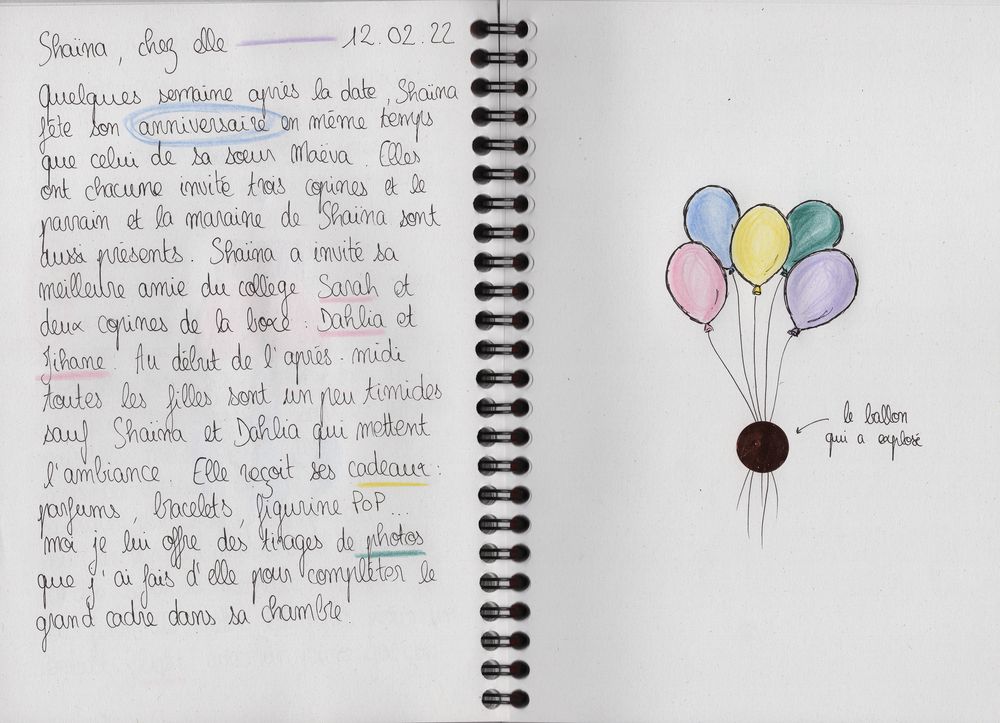 Shaïna, chez elle 12.02.22
Quelques semaine après la date, Shaïna
fête son anniversaire en même temps
que celui de sa sœur Maëva. Elles
ont chacune invité trois copines et le
parrain et la maraine de Shaïna sont
aussi présents. Shaïna a invité sa
meilleure amie du collège Sarah et
deux copines de la boxe : Dahlia et
Jihane. Au début de l'après-midi
toutes les filles sont un peu timides
sauf Shaïna et Dahlia qui mettent
l'ambiance. Elle reçoit ses cadeaux :
parfums, bracelets, figurine POP...
moi je lui offre des tirages de photos
que j'ai fais d'elle pour compléter le
grand cadre dans sa chambre.
le ballon
qui a explosé